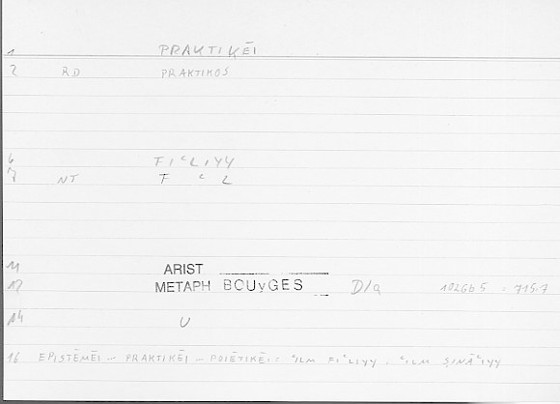 1 PRAKTIKĒI
2 RD PRAKTIKOS
6 FIʿLIYY
7 NT F ʿ L
11 ARIST
12 METAPH BOUyGES D/a 1026b5 = 715.7
14 U
16 EPISTĒMĒI – PRAKTIKĒI – POIĒTIKĒI: ʿILM FIʿLIYY, ʿILM ṢINĀʿIYY